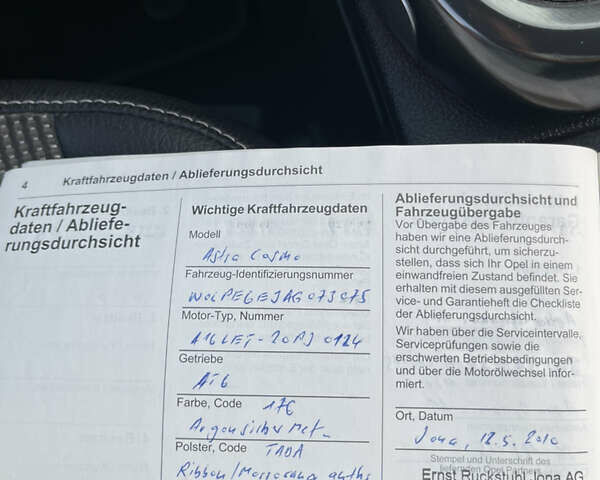 4
Kraftfahrzeugdaten / Ablieferungsdurchsicht
Kraftfahrzeug-
daten / Abliefe-
rungsdurchsicht
Wichtige Kraftfahrzeugdaten
Modell
Astra Cosmo
Fahrzeug-Identifizierungsnummer
W0LPE6EJAG073075
Motor-Typ, Nummer
A16LET-20PJ0124
Getriebe
AT6
Farbe, Code 176
Argonsilber Met.
Polster, Code TADA
Ribbon/
Ablieferungsdurchsicht und
Fahrzeugübergabe
Vor Übergabe des Fahrzeuges
haben wir eine Ablieferungsdurch-
sicht durchgeführt, um sicherzu-
stellen, dass sich Ihr Opel in einem
einwandfreien Zustand befindet. Sie
erhalten mit diesem ausgefüllten Ser-
vice- und Garantieheft die Checkliste
der Ablieferungsdurchsicht.
Wir haben über die Serviceintervalle,
Serviceprüfungen sowie die
erschwerten Betriebsbedingungen
und über die Motorölwechsel infor-
miert.
Ort, Datum
Jona, 12.5.2010
Stempel und Unterschrift des
liefernden Opel Partners
Ernst Rückstuhl Jona AG